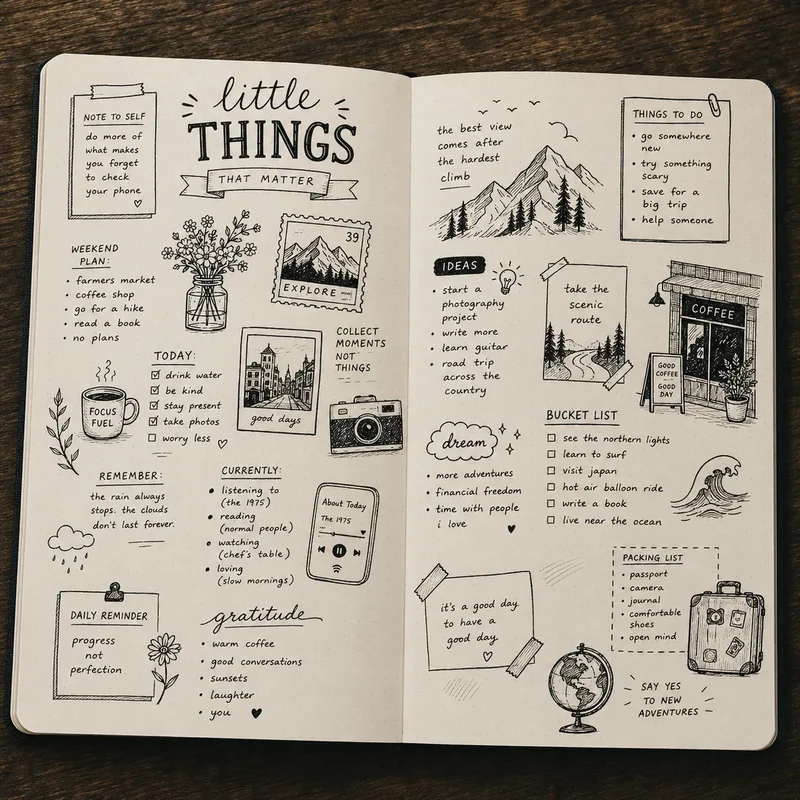 little
THINGS
THAT MATTER
NOTE TO SELF
do more of
what makes
you forget
to check
your phone
WEEKEND
PLAN:
• farmers market
• coffee shop
• go for a hike
• read a book
• no plans
39
EXPLORE
COLLECT
MOMENTS
NOT
THINGS
good days
TODAY:
☑ drink water
☑ be kind
☑ stay present
☑ take photos
☐ worry less
FOCUS
FUEL
REMEMBER:
the rain always
stops. the clouds
don't last forever.
CURRENTLY:
• listening to
(the 1975)
• reading
(normal people)
• watching
(chef's table)
• loving
(slow mornings)
About Today
The 1975
DAILY REMINDER
progress
not
perfection
gratitude
• warm coffee
• good conversations
• sunsets
• laughter
• you
the best view
comes after
the hardest
climb
THINGS TO DO
• go somewhere
new
• try something
scary
• save for a
big trip
• help someone
IDEAS
• start a
photography
project
• write more
• learn guitar
• road trip
across the
country
take the
scenic
route
COFFEE
GOOD
COFFEE
GOOD
DAY
dream
• more adventures
• financial freedom
• time with people
i love
BUCKET LIST
☐ see the northern lights
☐ learn to surf
☐ visit japan
☐ hot air balloon ride
☐ write a book
☐ live near the ocean
it's a good day
to have a
good day
PACKING LIST
• passport
• camera
• journal
• comfortable
shoes
• open mind
SAY YES
TO NEW
ADVENTURES